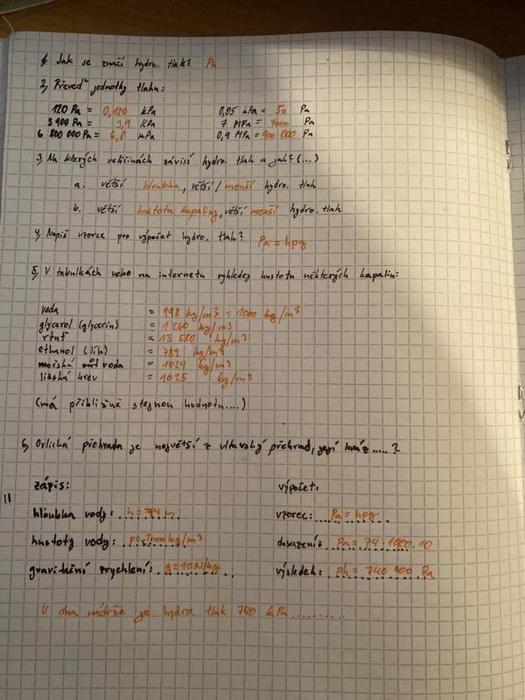 1, Jak se značí hydro. tlak? Pa
2, Převeď jednotky tlaku:
120 Pa = 0,120 kPa 0,05 kPa = 50 Pa
3 900 Pa = 3,9 kPa 7 MPa = 7000 Pa
6 800 000 Pa = 6,8 MPa 0,9 MPa = 900 000 Pa
3, Na kterých veličinách závisí hydro. tlak a jak? (...)
a. větší hloubka, větší / menší hydro. tlak
b. větší hustota kapaliny, větší menší hydro. tlak
4, Napiš vzorec pro výpočet hydro. tlak? Pa = hρg
5, V tabulkách nebo na internetu vyhledej hustotu některých kapalin:
voda = 998 kg/m³ = 1000 kg/m³
glycerol (glycerin) = 1260 kg/m³
rtuť = 13 580 kg/m³
ethanol (líh) = 789 kg/m³
mořská voda = 1024 kg/m³
lidská krev = 1025 kg/m³
(má přibližně stejnou hodnotu....)
6, Orlická přehrada je největší z vltavský přehrad, její hráz .....?
zápis: výpočet:
hloubka vody: h = 74 m vzorec: Pa = hρg
hustoty vody: kg/m³ dosazení: Pa = 74 . 1000 . 10
gravitační zrychlení: g = 10 N/kg výsledek: ph = 740 000 Pa
U dna nádrže je hydro. tlak 740 kPa..........